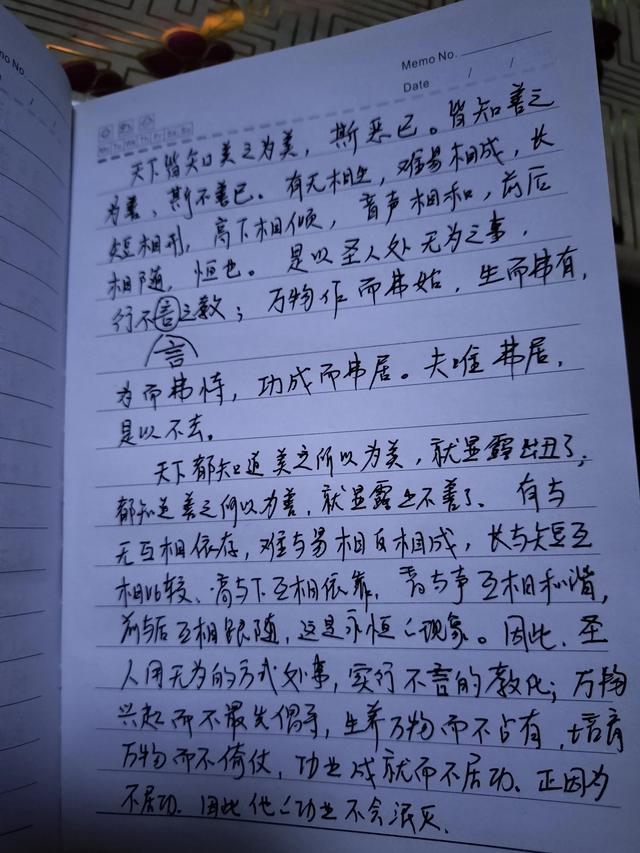 Memo No.
Memo No.
Date / /
Mo Tu We Th Fr Sa Su
天下皆知美之为美，斯恶已。皆知善之
为善、斯不善已。有无相生，难易相成，长
短相刑，高下相倾，音声相和，前后
相随，恒也。是以圣人处无为之事，
行不言之教；万物作而弗始，生而弗有，
言
为而弗恃，功成而弗居。夫唯弗居，
是以不去。
天下都知道美之所以为美，就显露出丑了，
都知道善之所以为善，就显露出不善了。有与
无互相依存，难与易相反相成，长与短互
相比较、高与下互相依靠，音与声互相和谐，
前与后互相跟随，这是永恒的现象。因此，圣
人用无为的方式处事，实行不言的教化；万物
兴起而不最先倡导，生养万物而不占有，培育
万物而不倚仗，功业成就而不居功。正因为
不居功。因此他的功业不会泯灭.